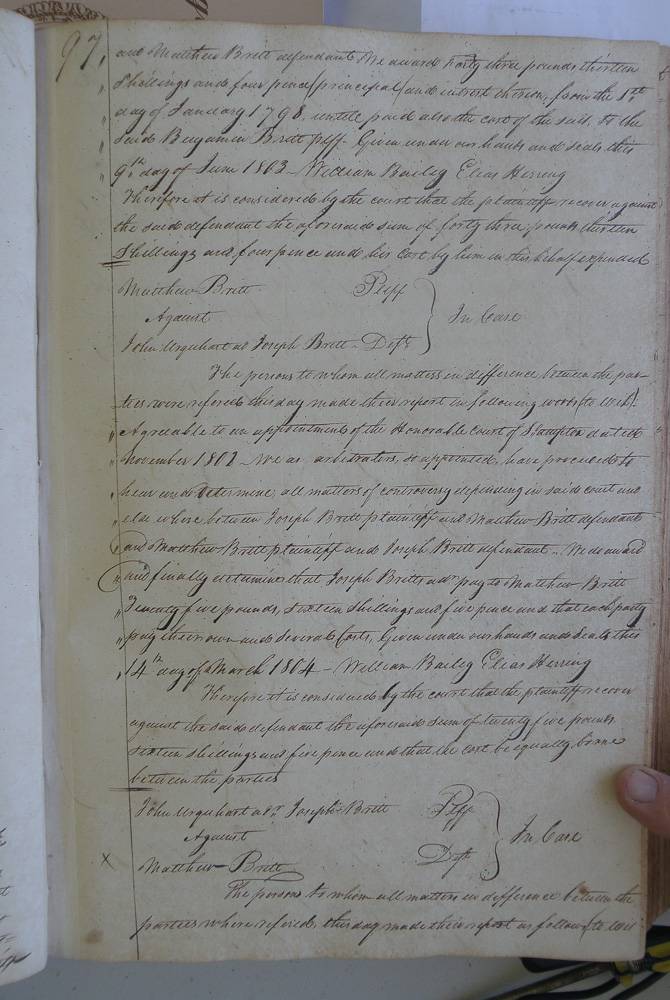 97,
and Matthew Britt defendant We award Forty three pounds thirteen
Shillings and four pence (principal) and intrest thereon, from the 1st
day of January 1798. untill paid also the cost of the suit, to the
said Benjamin Britt plff. Given under our hands and seals this
9th day of June 1803 - William Bailey Elias Herring
Therefore it is considered by the court that the plaintiff recover against
the said defendant the aforesaid sum of forty three pounds thirteen
Shillings and four pence and his Cost by him in this behalf expended
Matthew Britt Plff
Against } In Case
John Urquhart ad Joseph Britt - Deft
The persons to whom all matters in difference between the par-
ties were refered this day made their report in following words (to wit)
" Agreeable to an appointment of the Honorable Court of S.hampton dated
" November 1802 - We as arbitrators, so appointed, have proceeded to
" hear and determine, all matters of controversy depending in said court and
" else where between Joseph Britt plaintiff and Matthew Britt defendant
" and Matthew Britt plaintiff and Joseph Britt defendant - We do award
" and finally determine that Joseph Britts adr pay to Matthew Britt
" Twenty five pounds, sixteen shillings and five pence and that each party
" pay their own and several Costs, Given under our hands and Seals this
" 14th day of March 1804 - William Bailey Elias Herring
Therefore it is considered by the court that the plaintiff recover
against the said defendant the aforesaid sum of twenty five pounds
sixteen shillings and five pence and that the cost be equally borne
between the parties
John Urquhart adr Joseph Britt Plff
Against } In Case
x Matthew Britt Deft
The persons to whom all matters in difference between the
parties where refered, this day made their report as follows (to wit